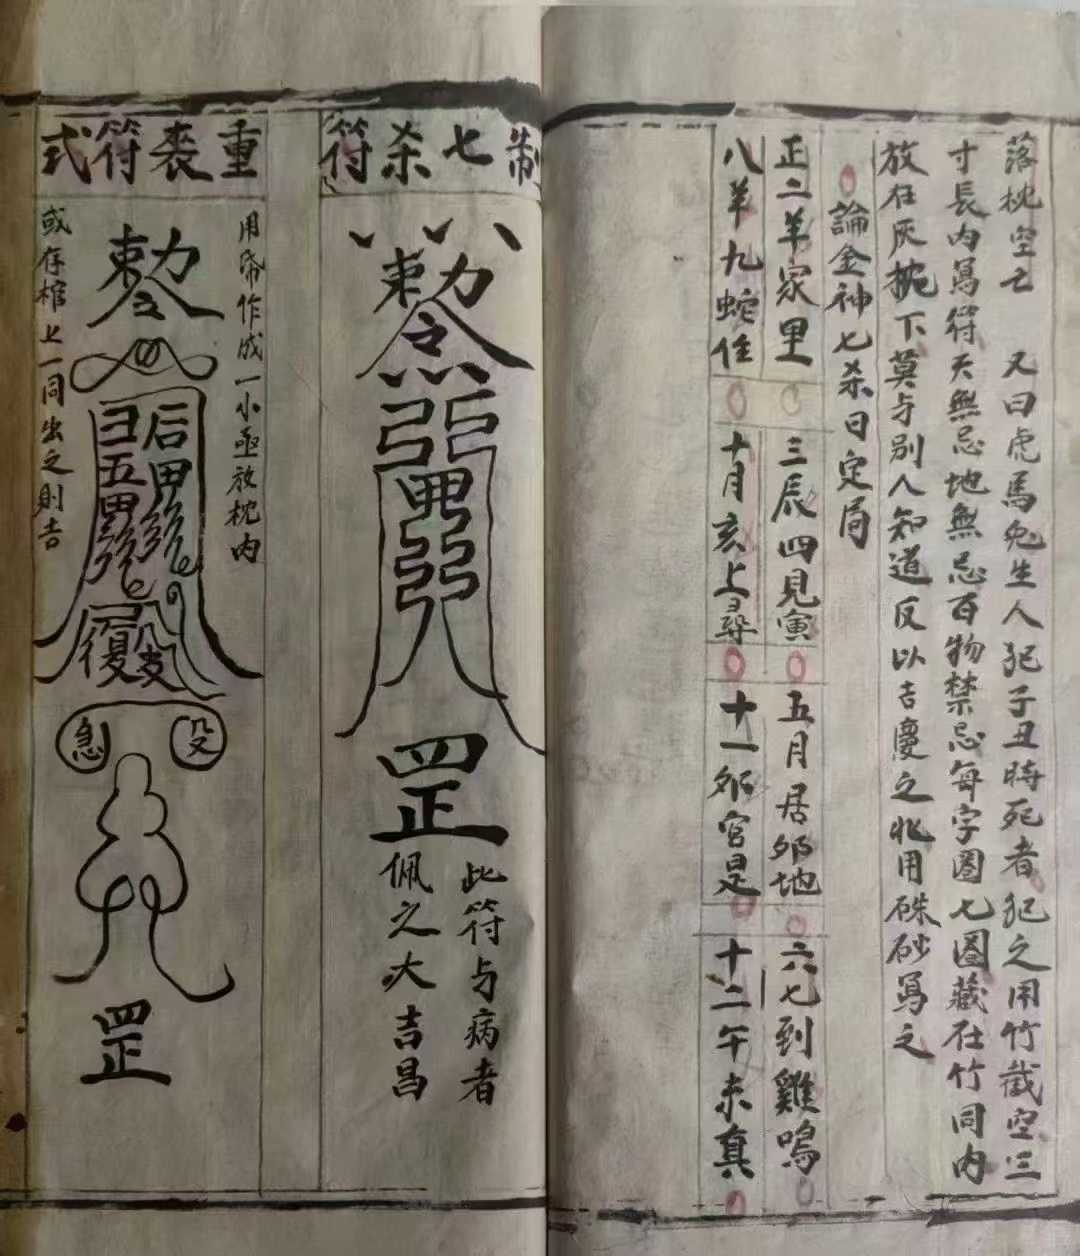 落枕空亡 又曰虎馬兔生人犯子丑時死者犯之用竹截空三
寸長內寫符天無忌地無忌百物禁忌每字圈七圈藏在竹同內
放在灰枕下莫与别人知道反以吉慶之兆用硃砂寫之
論金神七杀日定局
正二羊家里 三辰四見寅 五月居卯地 六七到雞鳴
八羊九蛇住 十月亥上尋 十一卯宮是 十二午未真
制七杀符
敕令
罡
此符与病者
佩之大吉昌
重喪符式
用帋作成一小函放枕內
敕令
罡
或存棺上一同出之則吉